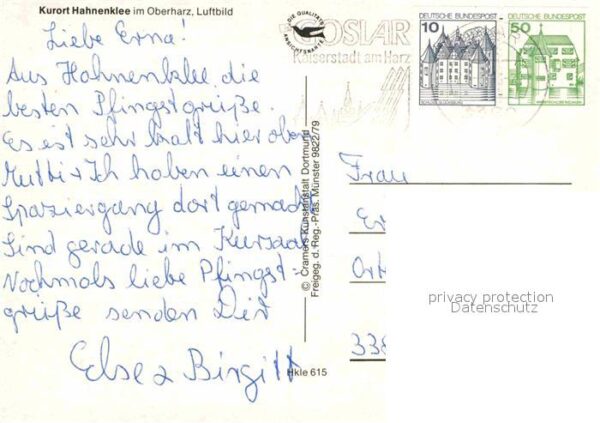 Kurort Hahnenklee im Oberharz, Luftbild
Liebe Erna!
Aus Hahnenklee die
besten Pfingstgrüße.
Es ist sehr kalt hier oben
Mutti + Ich haben einen
Spaziergang dort gemacht
Sind gerade im Kursaal
Nochmals liebe Pfingst-
grüße senden Dir
Else & Birgitt
DIE QUALITÄTS
ANSICHTSKARTE
GOSLAR
Kaiserstadt am Harz
DEUTSCHE BUNDESPOST
10
DEUTSCHE BUNDESPOST
50
© Cramers Kunstanstalt Dortmund
Freigeg. d. Reg.-Präs. Münster 9822/79
Hkle 615
Frau
Er
Ort
338
privacy protection
Datenschutz